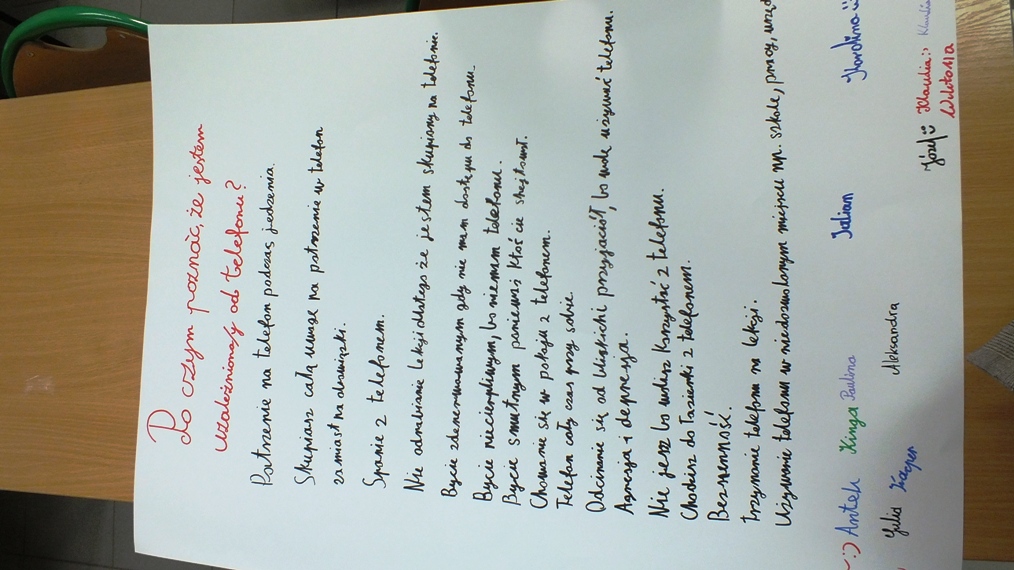 Po czym poznać, że jestem
uzależniony/y od telefonu?
Patrzenie na telefon podczas jedzenia.
Skupiasz całą uwagę na patrzenie w telefon
zamiast na obowiązki.
Spanie z telefonem.
Nie odrabianie lekcji dlatego że jestem skupiony na telefonie.
Bycie zdenerwowanym gdy nie mam dostępu do telefonu.
Bycie niecierpliwym, bo nie mam telefonu.
Bycie smutnym ponieważ ktoś cię
Chowanie się w pokoju z telefonem.
Telefon cały czas przy sobie.
Odcinanie się od bliskich i przyjaciół, bo wole używać telefonu.
Agresja i depresja.
Nie jesz bo wolisz korzystać z telefonu.
Chodzisz do łazienki z telefonem.
Bezsenność.
Trzymanie telefonu na lekcji.
Używanie telefonu w niedozwolonym miejscu np. szkole, pracy,
:) Antek Kinga Paulina Julian Karolina :)
Julia Kacper Aleksandra Józef Klaudia :)
Wiktoria